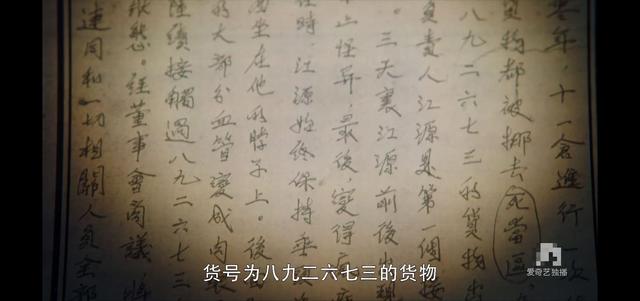 老年，十一倉進行一次
貨物都被挪去死當區，
八九二六七三的貨物出
負責人江源是第一個接
。三天裏江源前後出現
上怪异，最後變得
任時，江源始終保持垂
坐在他的脖子上。後
的大部分血管變成肉
陸續接觸過八九二六七三
狀態。經董事會商議，將
連同和一切相關人員全部
货号为八九二六七三的货物
爱奇艺独播